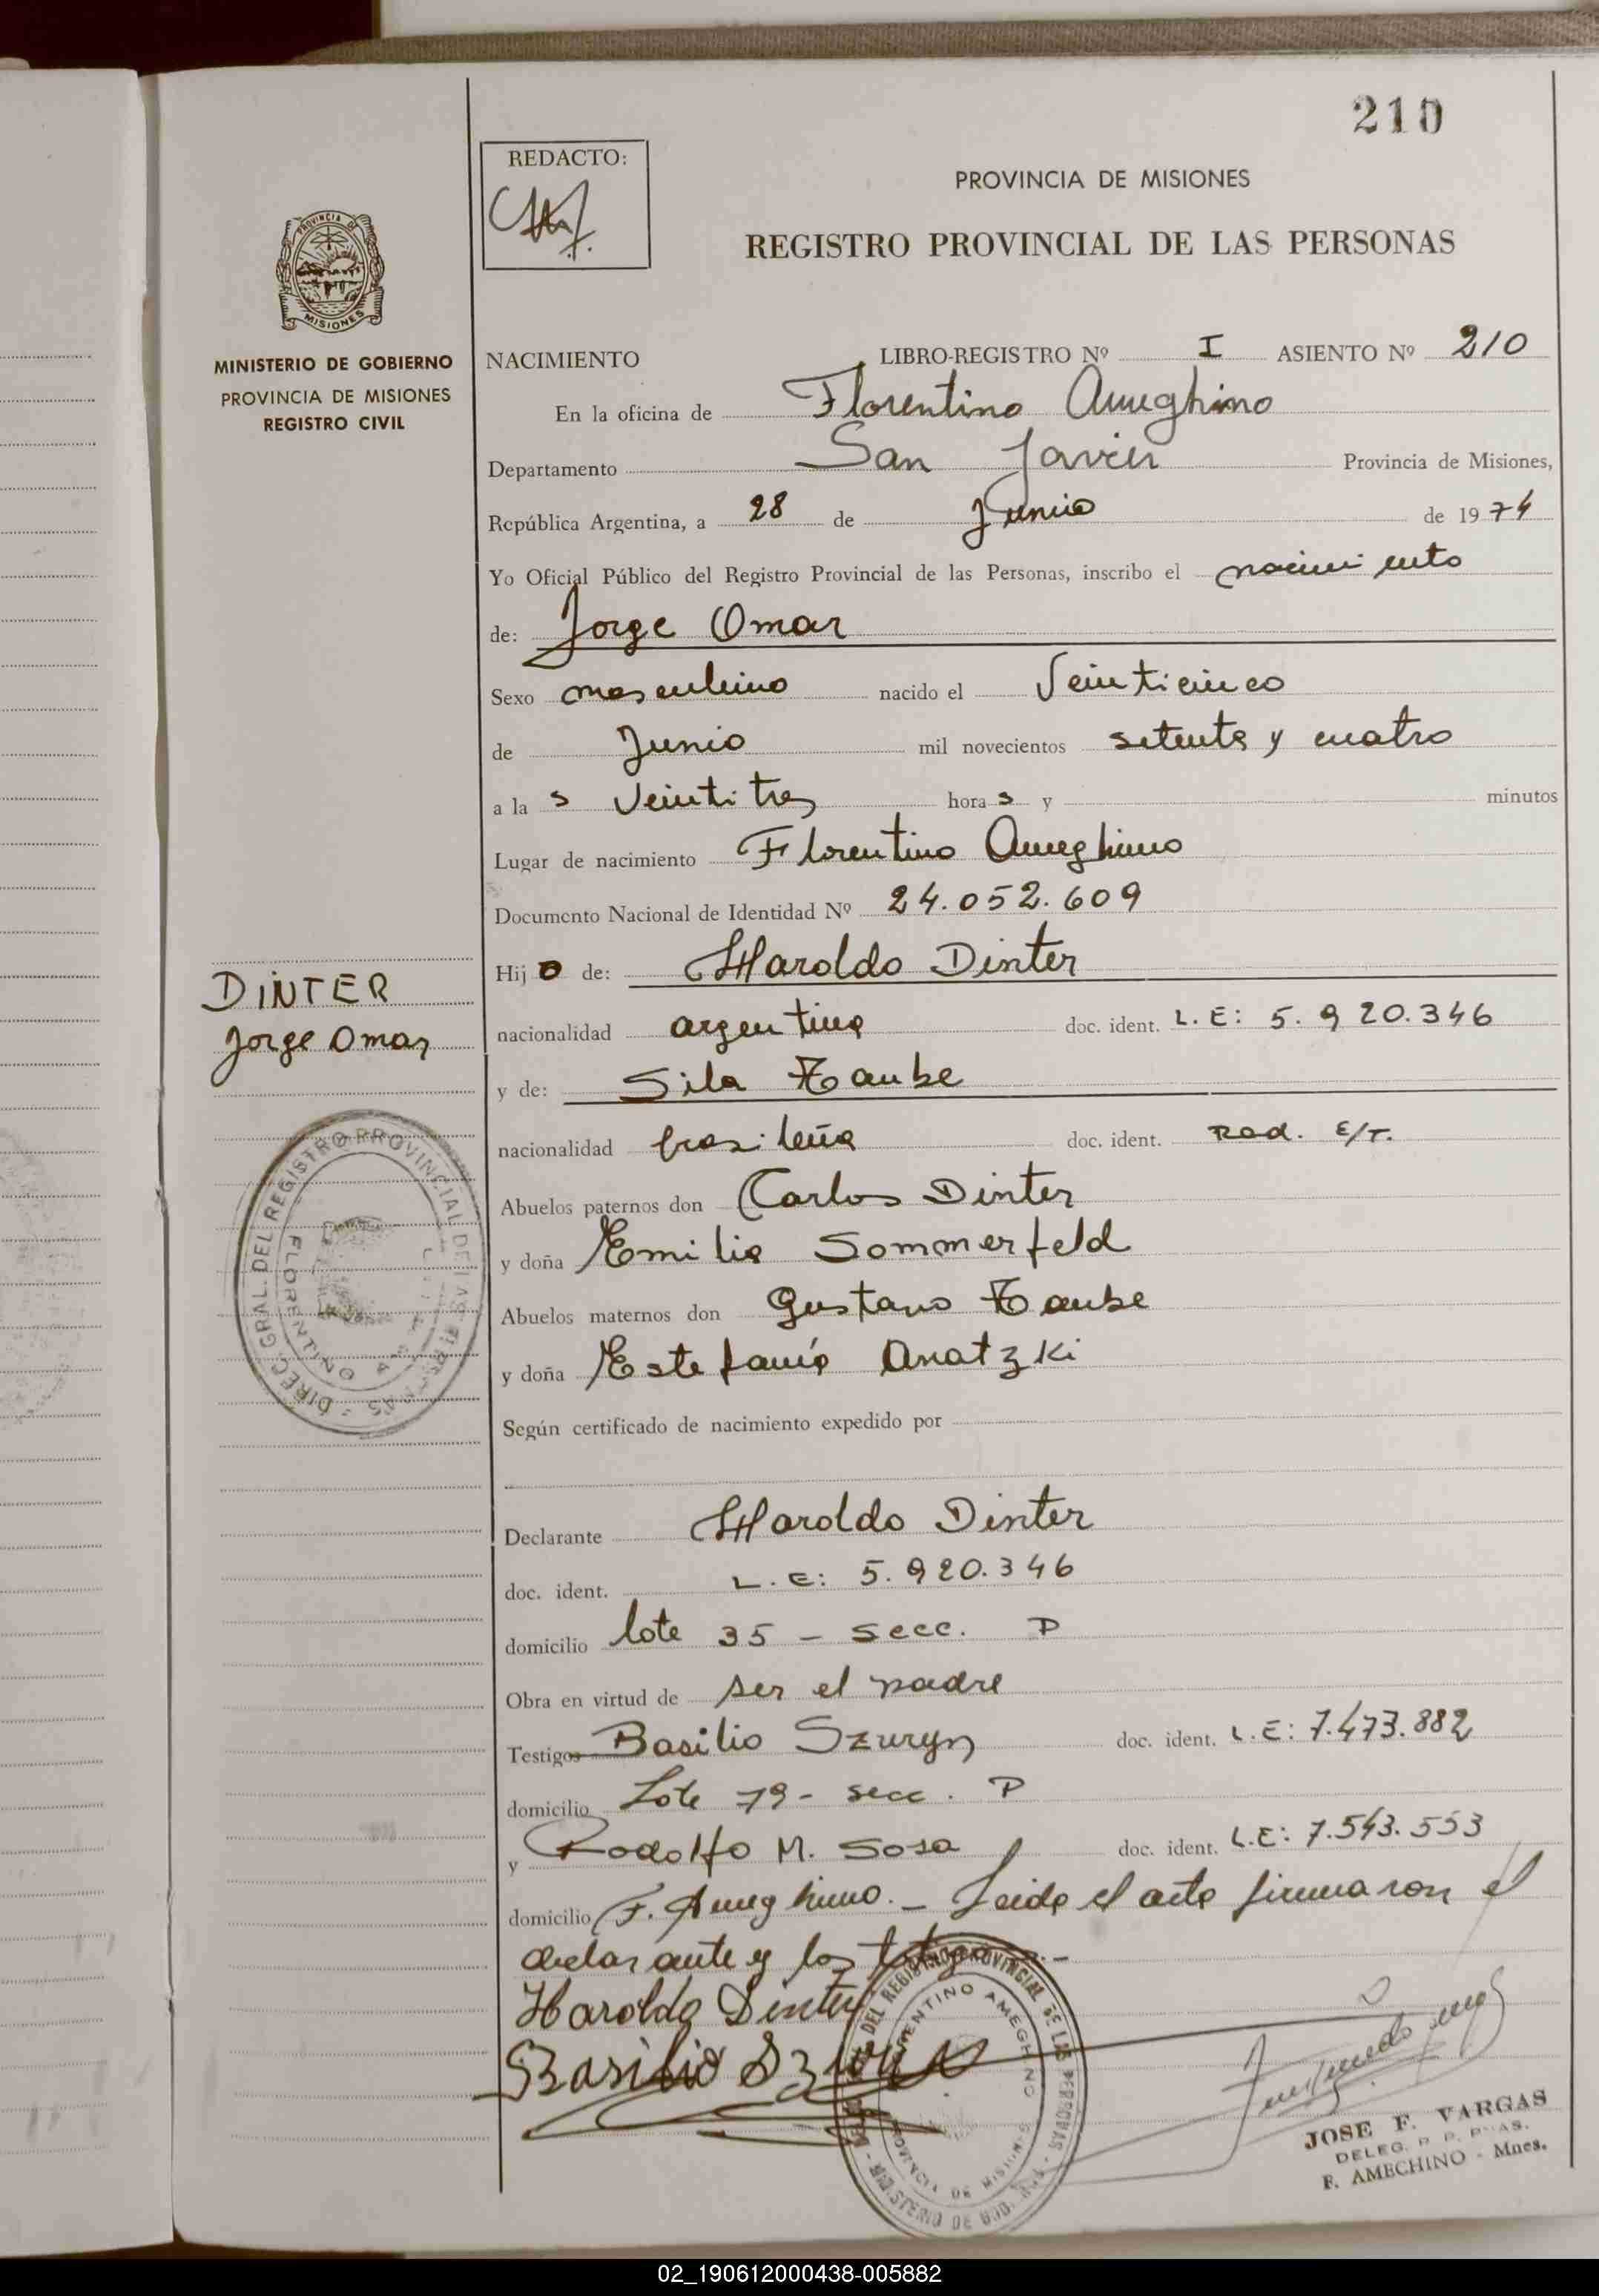 210
REDACTO:
PROVINCIA DE MISIONES
REGISTRO PROVINCIAL DE LAS PERSONAS
PROVINCIA DE
MISIONES
MINISTERIO DE GOBIERNO
PROVINCIA DE MISIONES
REGISTRO CIVIL
NACIMIENTO LIBRO-REGISTRO Nº I ASIENTO Nº 210
En la oficina de Florentino Ameghino
Departamento San Javier Provincia de Misiones,
República Argentina, a 28 de Junio de 1974
Yo Oficial Público del Registro Provincial de las Personas, inscribo el nacimiento
de: Jorge Omar
Sexo masculino nacido el Veinticinco
de Junio mil novecientos setenta y cuatro
a las Veintitres horas y minutos
Lugar de nacimiento Florentino Ameghino
Documento Nacional de Identidad Nº 24.052.609
Hijo de: Haroldo Dinter
DINTER
Jorge Omar
nacionalidad argentina doc. ident. L.E: 5.920.346
y de: Sila Taube
nacionalidad brasileña doc. ident. Rad. E/T.
Abuelos paternos don Carlos Dinter
y doña Emilia Sommerfeld
Abuelos maternos don Gustavo Taube
y doña Estefanía Anatzki
DIREC. GRAL. DEL REGISTRO PROVINCIAL DE LAS PERSONAS
FLORENTINO
Según certificado de nacimiento expedido por
Declarante Haroldo Dinter
doc. ident. L.E: 5.920.346
domicilio lote 35 - secc. P
Obra en virtud de ser el padre
Testigos Basilio Szuryn doc. ident. L.E: 7.473.882
domicilio Lote 79 - secc. P
y Rodolfo M. Sosa doc. ident. L.E: 7.543.553
domicilio F. Ameghino. - Leida el acta firmaron el
declarante y los testigos.-
Haroldo Dinter
Basilio
DEL REGISTRO PROVINCIAL DE LAS PERSONAS
FLORENTINO AMEGHINO
PROVINCIA DE MISIONES
MINISTERIO DE GOB.
JOSE F. VARGAS
DELEG.
F. AMECHINO - Mnes.
02_190612000438-005882